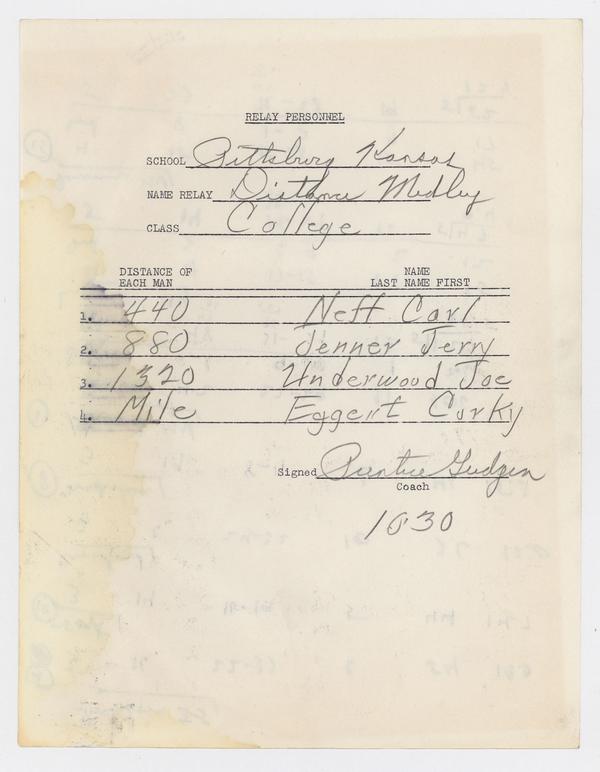 RELAY PERSONNEL
SCHOOL Pittsburg Kansas
NAME RELAY Distance Medley
CLASS College
DISTANCE OF EACH MAN NAME LAST NAME FIRST
1. 440 Neff Carl
2. 880 Jenner Jerry
3. 1320 Underwood Joe
4. Mile Eggert Corky
Signed Prentice Gudgen
Coach
1030